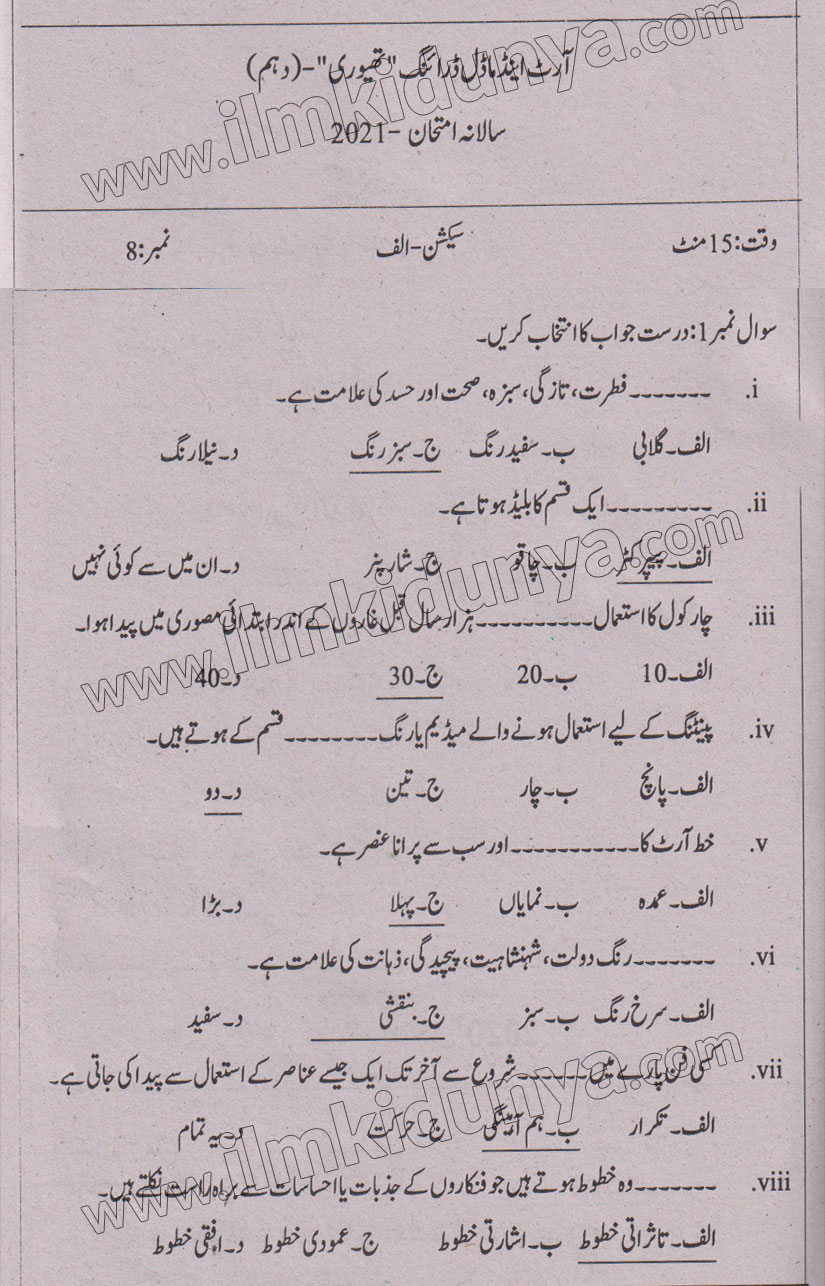 آرٹ اینڈ ماڈل ڈرائنگ "تھیوری" -(دہم)
سالانہ امتحان -2021
وقت:15 منٹ سیکشن-الف نمبر:8
سوال نمبر 1: درست جواب کا انتخاب کریں۔
i. ------- فطرت، تازگی، سبزہ، صحت اور حسد کی علامت ہے۔
الف۔ گلابی ب۔ سفید رنگ ج۔ سبز رنگ د۔ نیلا رنگ
ii. --------- ایک قسم کا بلیڈ ہوتا ہے۔
الف۔ پیپر کٹر ب۔ چاقو ج۔ شارپنر د۔ ان میں سے کوئی نہیں
iii. چارکول کا استعمال ---------- ہزار سال قبل غاروں کے اندر ابتدائی مصوری میں پیدا ہوا۔
الف۔ 10 ب۔ 20 ج۔ 30 د۔ 40
iv. پینٹنگ کے لیے استعمال ہونے والے میڈیم یا رنگ -------- قسم کے ہوتے ہیں۔
الف۔ پانچ ب۔ چار ج۔ تین د۔ دو
v. خط آرٹ کا ----------- اور سب سے پرانا عنصر ہے۔
الف۔ عمدہ ب۔ نمایاں ج۔ پہلا د۔ بڑا
vi. ------- رنگ دولت، شہنشاہیت، پیچیدگی، ذہانت کی علامت ہے۔
الف۔ سرخ رنگ ب۔ سبز ج۔ بنفشی د۔ سفید
vii. کسی فن پارے میں ------ شروع سے آخر تک ایک جیسے عناصر کے استعمال سے پیدا کی جاتی ہے۔
الف۔ تکرار ب۔ ہم آہنگی ج۔ حرکت د۔ یہ تمام
viii. ------- وہ خطوط ہوتے ہیں جو فنکاروں کے جذبات یا احساسات سے براہ راست نکلتے ہیں۔
الف۔ تاثراتی خطوط ب۔ اشارتی خطوط ج۔ عمودی خطوط د۔ افقی خطوط
www.ilmkidunya.com
www.ilmkidunya.com
www.ilmkidunya.com